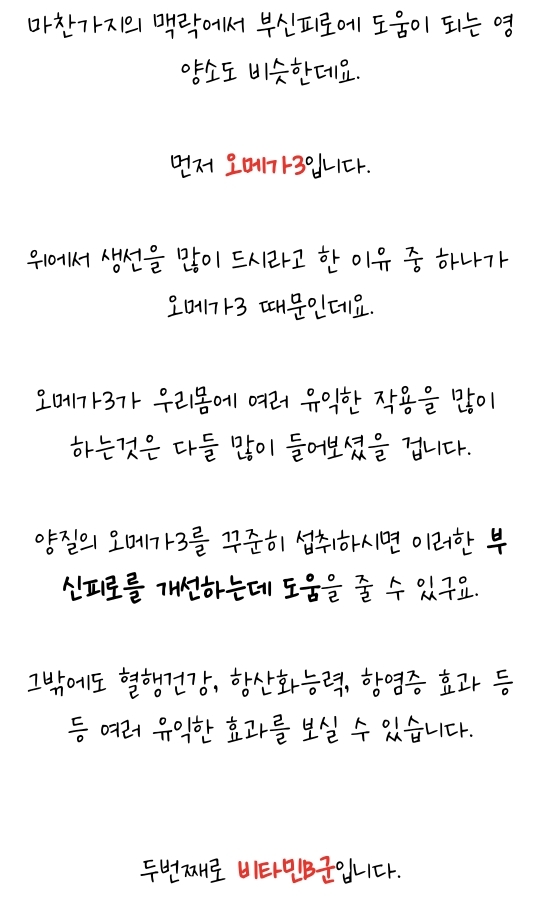 마찬가지의 맥락에서 부신피로에 도움이 되는 영
양소도 비슷한데요.
먼저 오메가3입니다.
위에서 생선을 많이 드시라고 한 이유 중 하나가
오메가3 때문인데요.
오메가3가 우리몸에 여러 유익한 작용을 많이
하는것은 다들 많이 들어보셨을 겁니다.
양질의 오메가3를 꾸준히 섭취하시면 이러한 부
신피로를 개선하는데 도움을 줄 수 있구요.
그밖에도 혈행건강, 항산화능력, 항염증 효과 등
등 여러 유익한 효과를 보실 수 있습니다.
두번째로 비타민B군입니다.